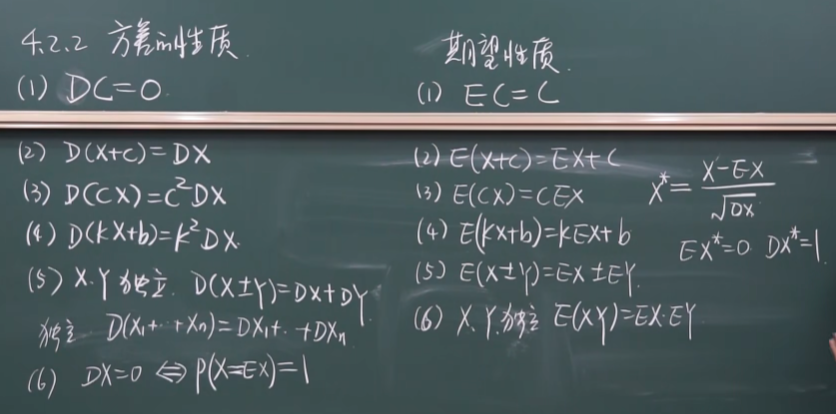 4.2.2 方差的性质
(1) DC=0
(2) D(X+C)=DX
(3) D(CX)=C²DX
(4) D(kX+b)=k²DX
(5) X.Y 独立. D(X±Y)=DX+DY
独立 D(X₁+··+Xₙ)=DX₁+··+DXₙ
(6) DX=0 ⇔ P(X=EX)=1
期望性质.
(1) EC=C
(2) E(X+C)=EX+C
(3) E(CX)=CEX
(4) E(kX+b)=kEX+b
(5) E(X±Y)=EX±EY
(6) X.Y.独立 E(XY)=EX·EY
X*=(X-EX)/√DX
EX*=0 DX*=1